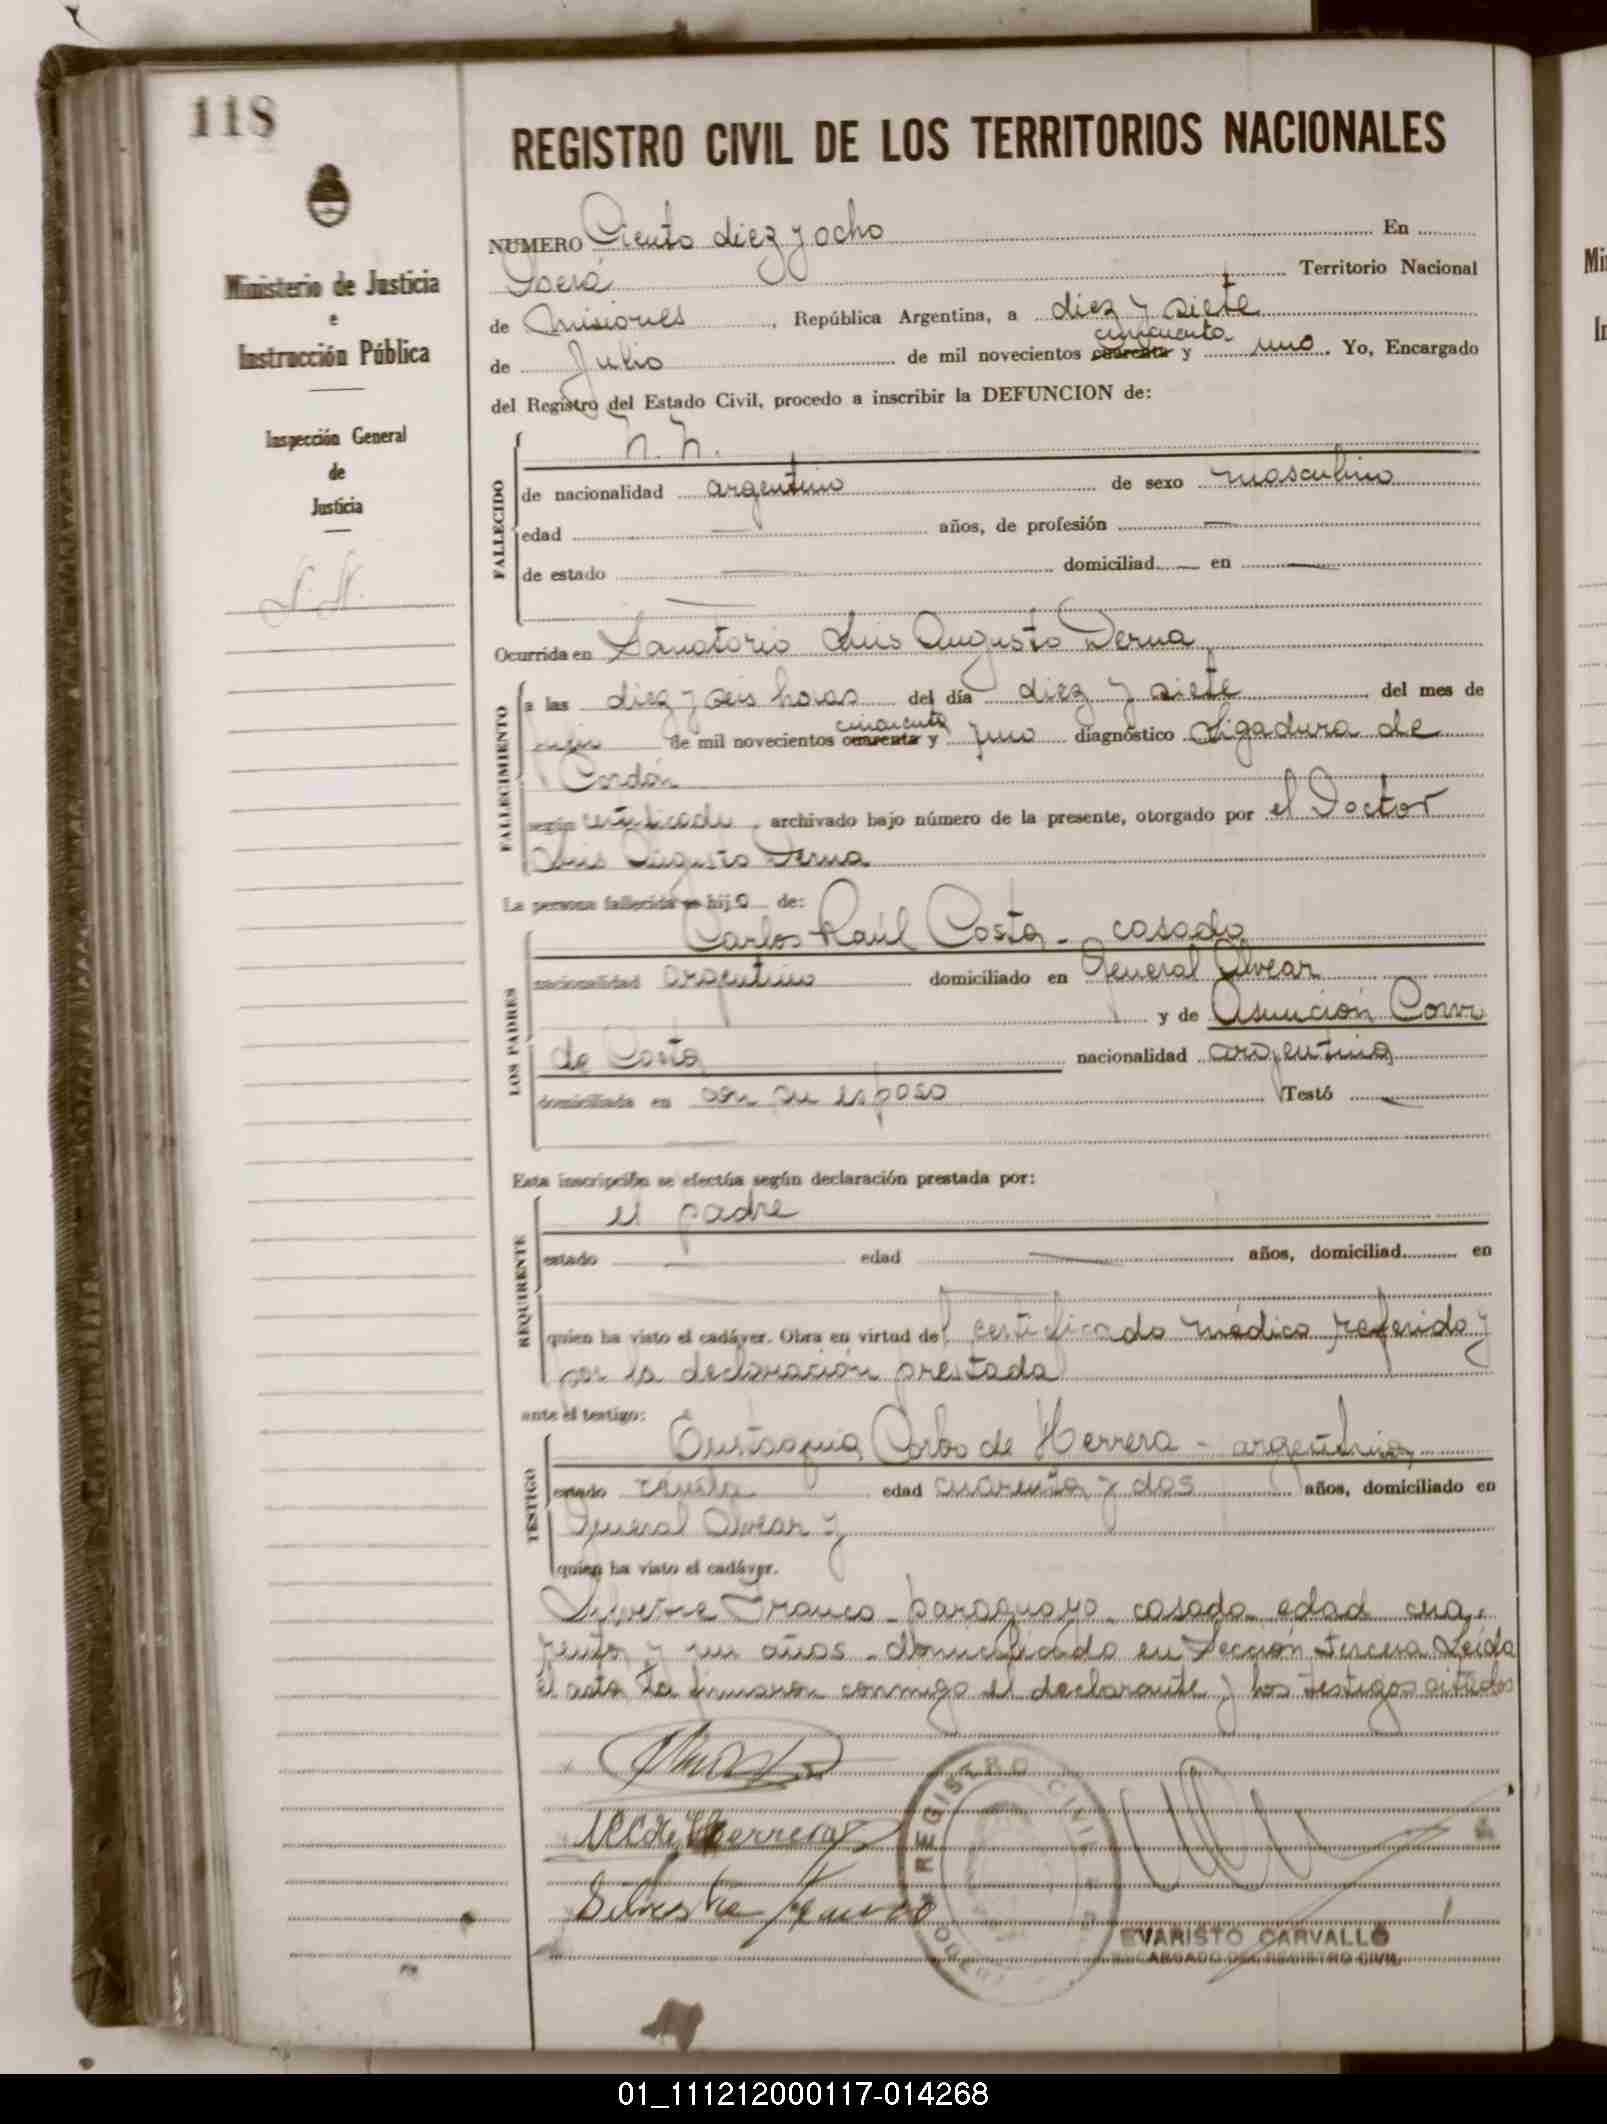 118
REGISTRO CIVIL DE LOS TERRITORIOS NACIONALES
Ministerio de Justicia
e
Instrucción Pública
Inspección General
de
Justicia
N. N.
NUMERO Ciento diez y ocho En
Oberá Territorio Nacional
de Misiones, República Argentina, a diez y siete
cincuenta
de Julio de mil novecientos cuarenta y uno. Yo, Encargado
del Registro del Estado Civil, procedo a inscribir la DEFUNCION de:
FALLECIDO
N. N.
de nacionalidad argentino de sexo masculino
edad — años, de profesión —
de estado — domiciliad — en —
Ocurrida en Sanatorio Luis Augusto Derna
FALLECIMIENTO
a las diez y seis horas del día diez y siete del mes de
cincuenta
julio de mil novecientos cuarenta y uno diagnóstico Ligadura de
Cordón
según certificado, archivado bajo número de la presente, otorgado por el Doctor
Luis Augusto Derna
La persona fallecida es hijo de:
LOS PADRES
Carlos Raúl Costa - casado
nacionalidad argentino domiciliado en General Alvear
y de Asunción
de Costa nacionalidad argentina
domiciliada en con su esposo Testó —
Esta inscripción se efectúa según declaración prestada por:
REQUIRENTE
el padre
estado — edad — años, domiciliad en
quien ha visto el cadáver. Obra en virtud del certificado médico referido y
por la declaración prestada
ante el testigo:
TESTIGO
Eustaquia de Herrera - argentina
estado viuda edad cuarenta y dos años, domiciliado en
General Alvear y
quien ha visto el cadáver.
Silvestre Franco - paraguayo - casado edad cua-
renta y un años - domiciliado en Sección tercera Leída
el acta la firmaron conmigo el declarante y los testigos citados
Herrera
Silvestre Franco
REGISTRO CIVIL
EVARISTO CARVALLO
ENCARGADO DEL REGISTRO CIVIL
01_111212000117-014268